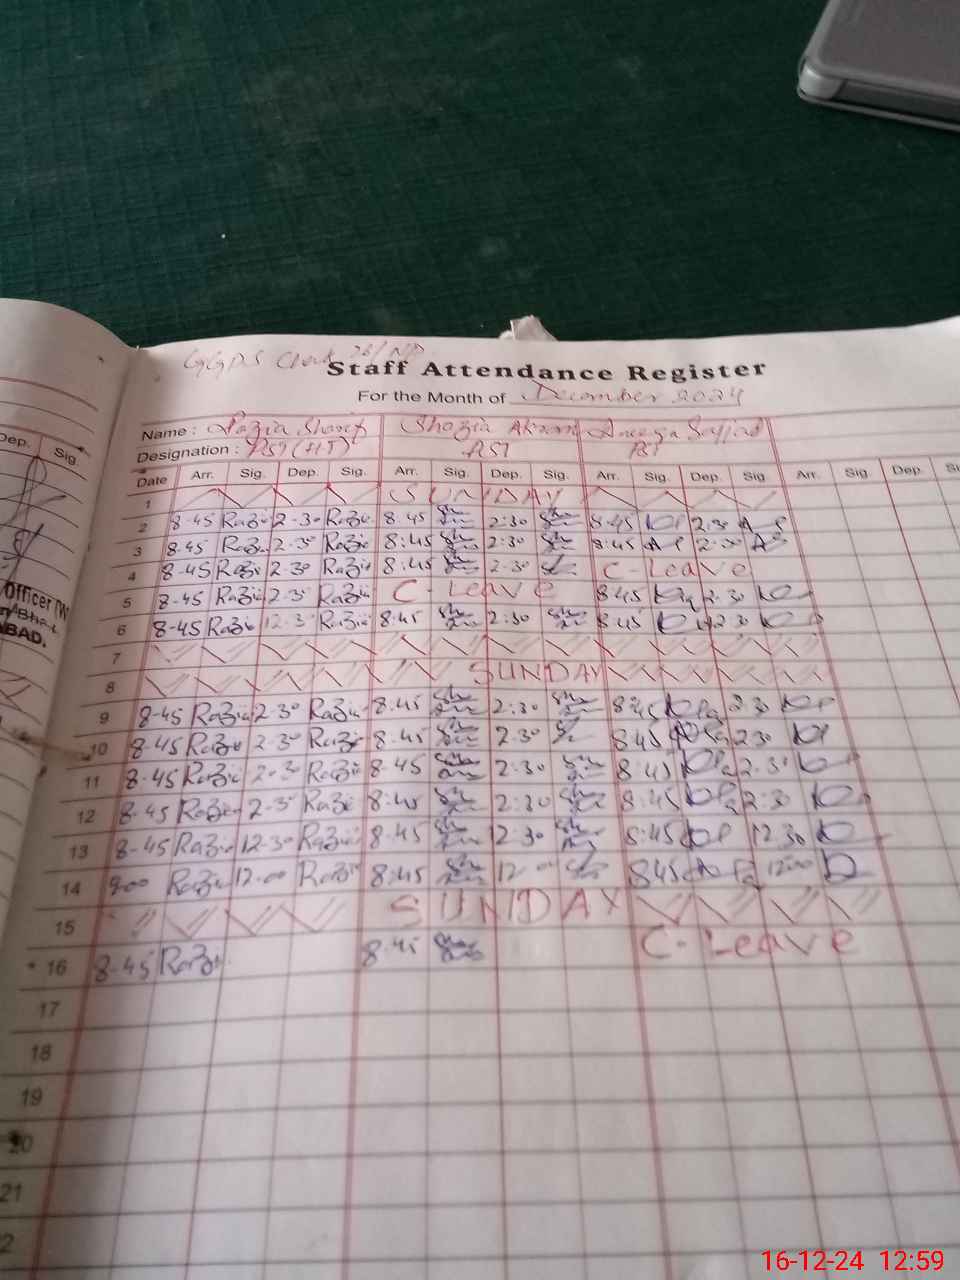 GGPS Chak 26/NP
Staff Attendance Register
For the Month of December 2024
Name : Razia Sharif Shazia Akram Aneeqa Sajjad
Designation : PST (HT) PST PST
Date Arr. Sig. Dep. Sig. Arr. Sig. Dep. Sig. Arr. Sig. Dep. Sig Arr. Sig Dep.
1 SUNDAY
2 8-45 Razia 2-30 Razia 8:45 2:30 8:45 2:30
3 8-45 Razia 2-30 Razia 8:45 2:30 8:45 2:30
4 8-45 Razia 2-30 Razia 8:45 2-30 C-Leave
5 8-45 Razia 2-30 Razia C-Leave 8:45 2-30
6 8-45 Razia 12-30 Razia 8:45 2:30 8:45 12-30
7
8 SUNDAY
9 8-45 Razia 2-30 Razia 8:45 2:30 8:45 2-30
10 8-45 Razia 2-30 Razia 8:45 2-30 8:45 2-30
11 8-45 Razia 2-30 Razia 8:45 2-30 8:45 2-30
12 8-45 Razia 2-30 Razia 8:45 2:30 8:45 2:30
13 8-45 Razia 12-30 Razia 8:45 12-30 8:45 12-30
14 9-00 Razia 12-00 Razia 8:45 12-00 8:45 12:00
15 SUNDAY
16 8-45 Razia 8:45 C-Leave
17
18
19
20
21
2
Dep. Sig.
Officer (W
BAD.
16-12-24 12:59